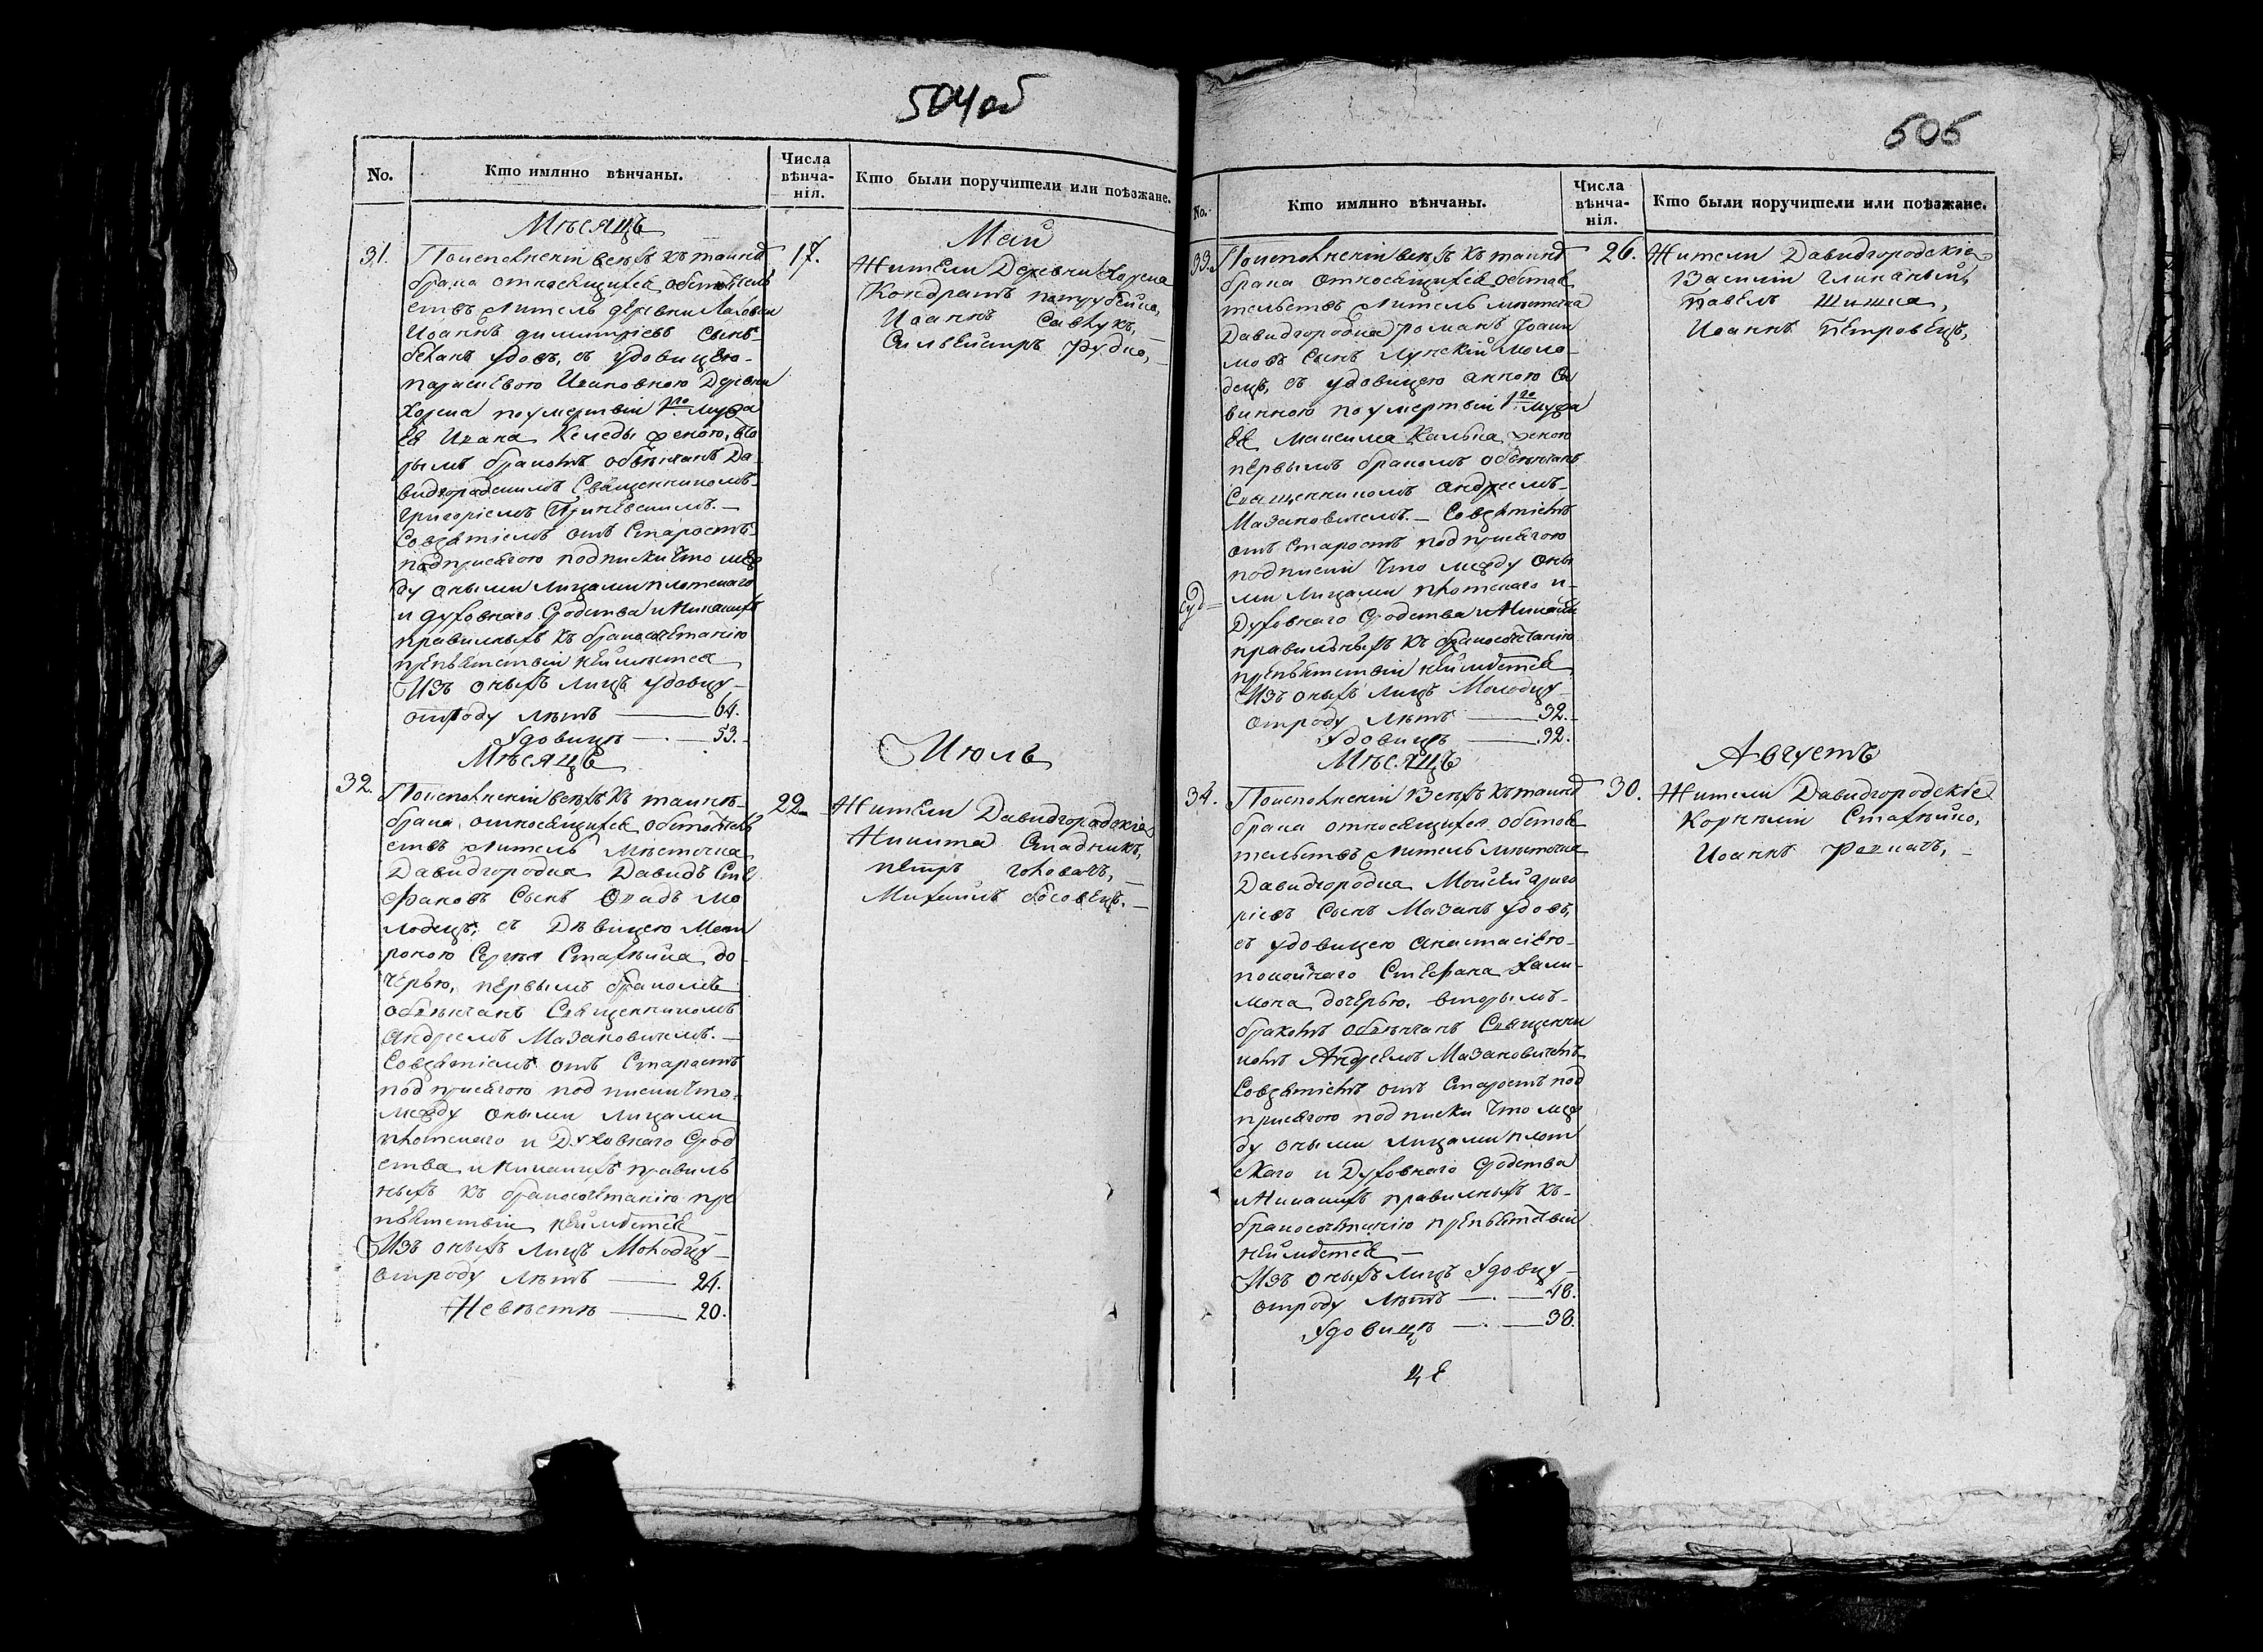 504 об
No.
Кто имянно вѣнчаны.
Числа
вѣнча-
нія.
Кто были поручители или поѣзжане.
Мѣсяцъ
Май
31.
По исполненіи всѣхъ къ таинѣ
брака относящихся обстоятель
ствъ житель деревни Лаховки
Иоаннъ Димитріевъ сынъ
удовъ, съ удовицею
Параскевою Ивановною деревни
Хорска по умертвіи 1го мужа
ея Ивана Келеды женою, вто
рымъ бракомъ обвѣнчанъ Да
видгородскимъ Священникомъ
Григоріемъ
Со взятіемъ отъ Старостъ
подъ присягою подписки что меж
ду оными лицами плотскаго
и духовнаго сродства и никакихъ
правилныхъ къ бракосочетанію
препятствій неимѣется
Изъ оныхъ лицъ удовцу
отроду лѣтъ — 64.
Удовицѣ — 53.
17.
Жители Деревни Хорска
Кондратъ
Иоаннъ Савчукъ,
Сильвестръ Рудко,
Мѣсяцъ
Июль
32.
По исполненіи всѣхъ къ таинѣ
брака относящихся обстоятель
ствъ житель мѣстечка
Давидгородка Давидъ Сте
фановъ сынъ мо
лодецъ, съ Дѣвицею
Сергѣя Стахѣйка до
черью, первымъ бракомъ
обвѣнчанъ Священникомъ
Андреемъ Мазановичемъ.
Со взятіемъ отъ Старостъ
подъ присягою подписки что
между оными лицами
плотскаго и Духовнаго Срод
ства и никакихъ правиль
ныхъ къ бракосочетанію пре
пятствій неимѣется
Изъ оныхъ лицъ Молодцу
отроду лѣтъ — 24.
Невѣстѣ — 20.
22
Жители Давидгородскіе
Никита Стадникъ,
Петръ
Михаилъ
505
No.
Кто имянно вѣнчаны.
Числа
вѣнча-
нія.
Кто были поручители или поѣзжане.
33.
По исполненіи всѣхъ къ таинѣ
брака относящихся обстоя
тельствъ житель мѣстечка
Давидгородка Романъ Иоанн
овъ сынъ Лунскій моло
децъ, съ удовицею Анною Са
вичною по умертвіи 1го мужа
ея Максима женою
первымъ бракомъ обвѣнчанъ
Священникомъ Андреемъ
Мазановичемъ. — Со взятіемъ
отъ Старостъ подъ присягою
подписки что между оны
ми лицами плотскаго и
Духовнаго сродства и никакихъ
правильныхъ къ бракосочетанію
препятствій неимѣется
Изъ оныхъ лицъ Молодцу
отроду лѣтъ — 32.
Удовицѣ — 32.
26.
Жители Давидгородскіе
Василій Глинскій,
Павелъ Шишка,
Иоаннъ Петровецъ,
Мѣсяцъ
Августъ
34.
По исполненіи всѣхъ къ таинѣ
брака относящихся обстоя
тельствъ житель мѣстечка
Давидгородка Мойсей Григо
ріевъ сынъ Мазанъ удовъ,
съ удовицею Анастасіею
покойнаго Стефана
дочерью, вторымъ
бракомъ обвѣнчанъ Священни
комъ Андреемъ Мазановичемъ
Со взятіемъ отъ Старостъ подъ
присягою подписки что меж
ду оными лицами плот
скаго и Духовнаго сродства
и никакихъ правилныхъ къ
бракосочетанію препятствій
неимѣется —
Изъ оныхъ лицъ Удовцу
отроду лѣтъ — 48.
Удовицѣ — 38.
30.
Жители Давидгородскіе
Корнѣлій Стахѣйко,
Иоаннъ